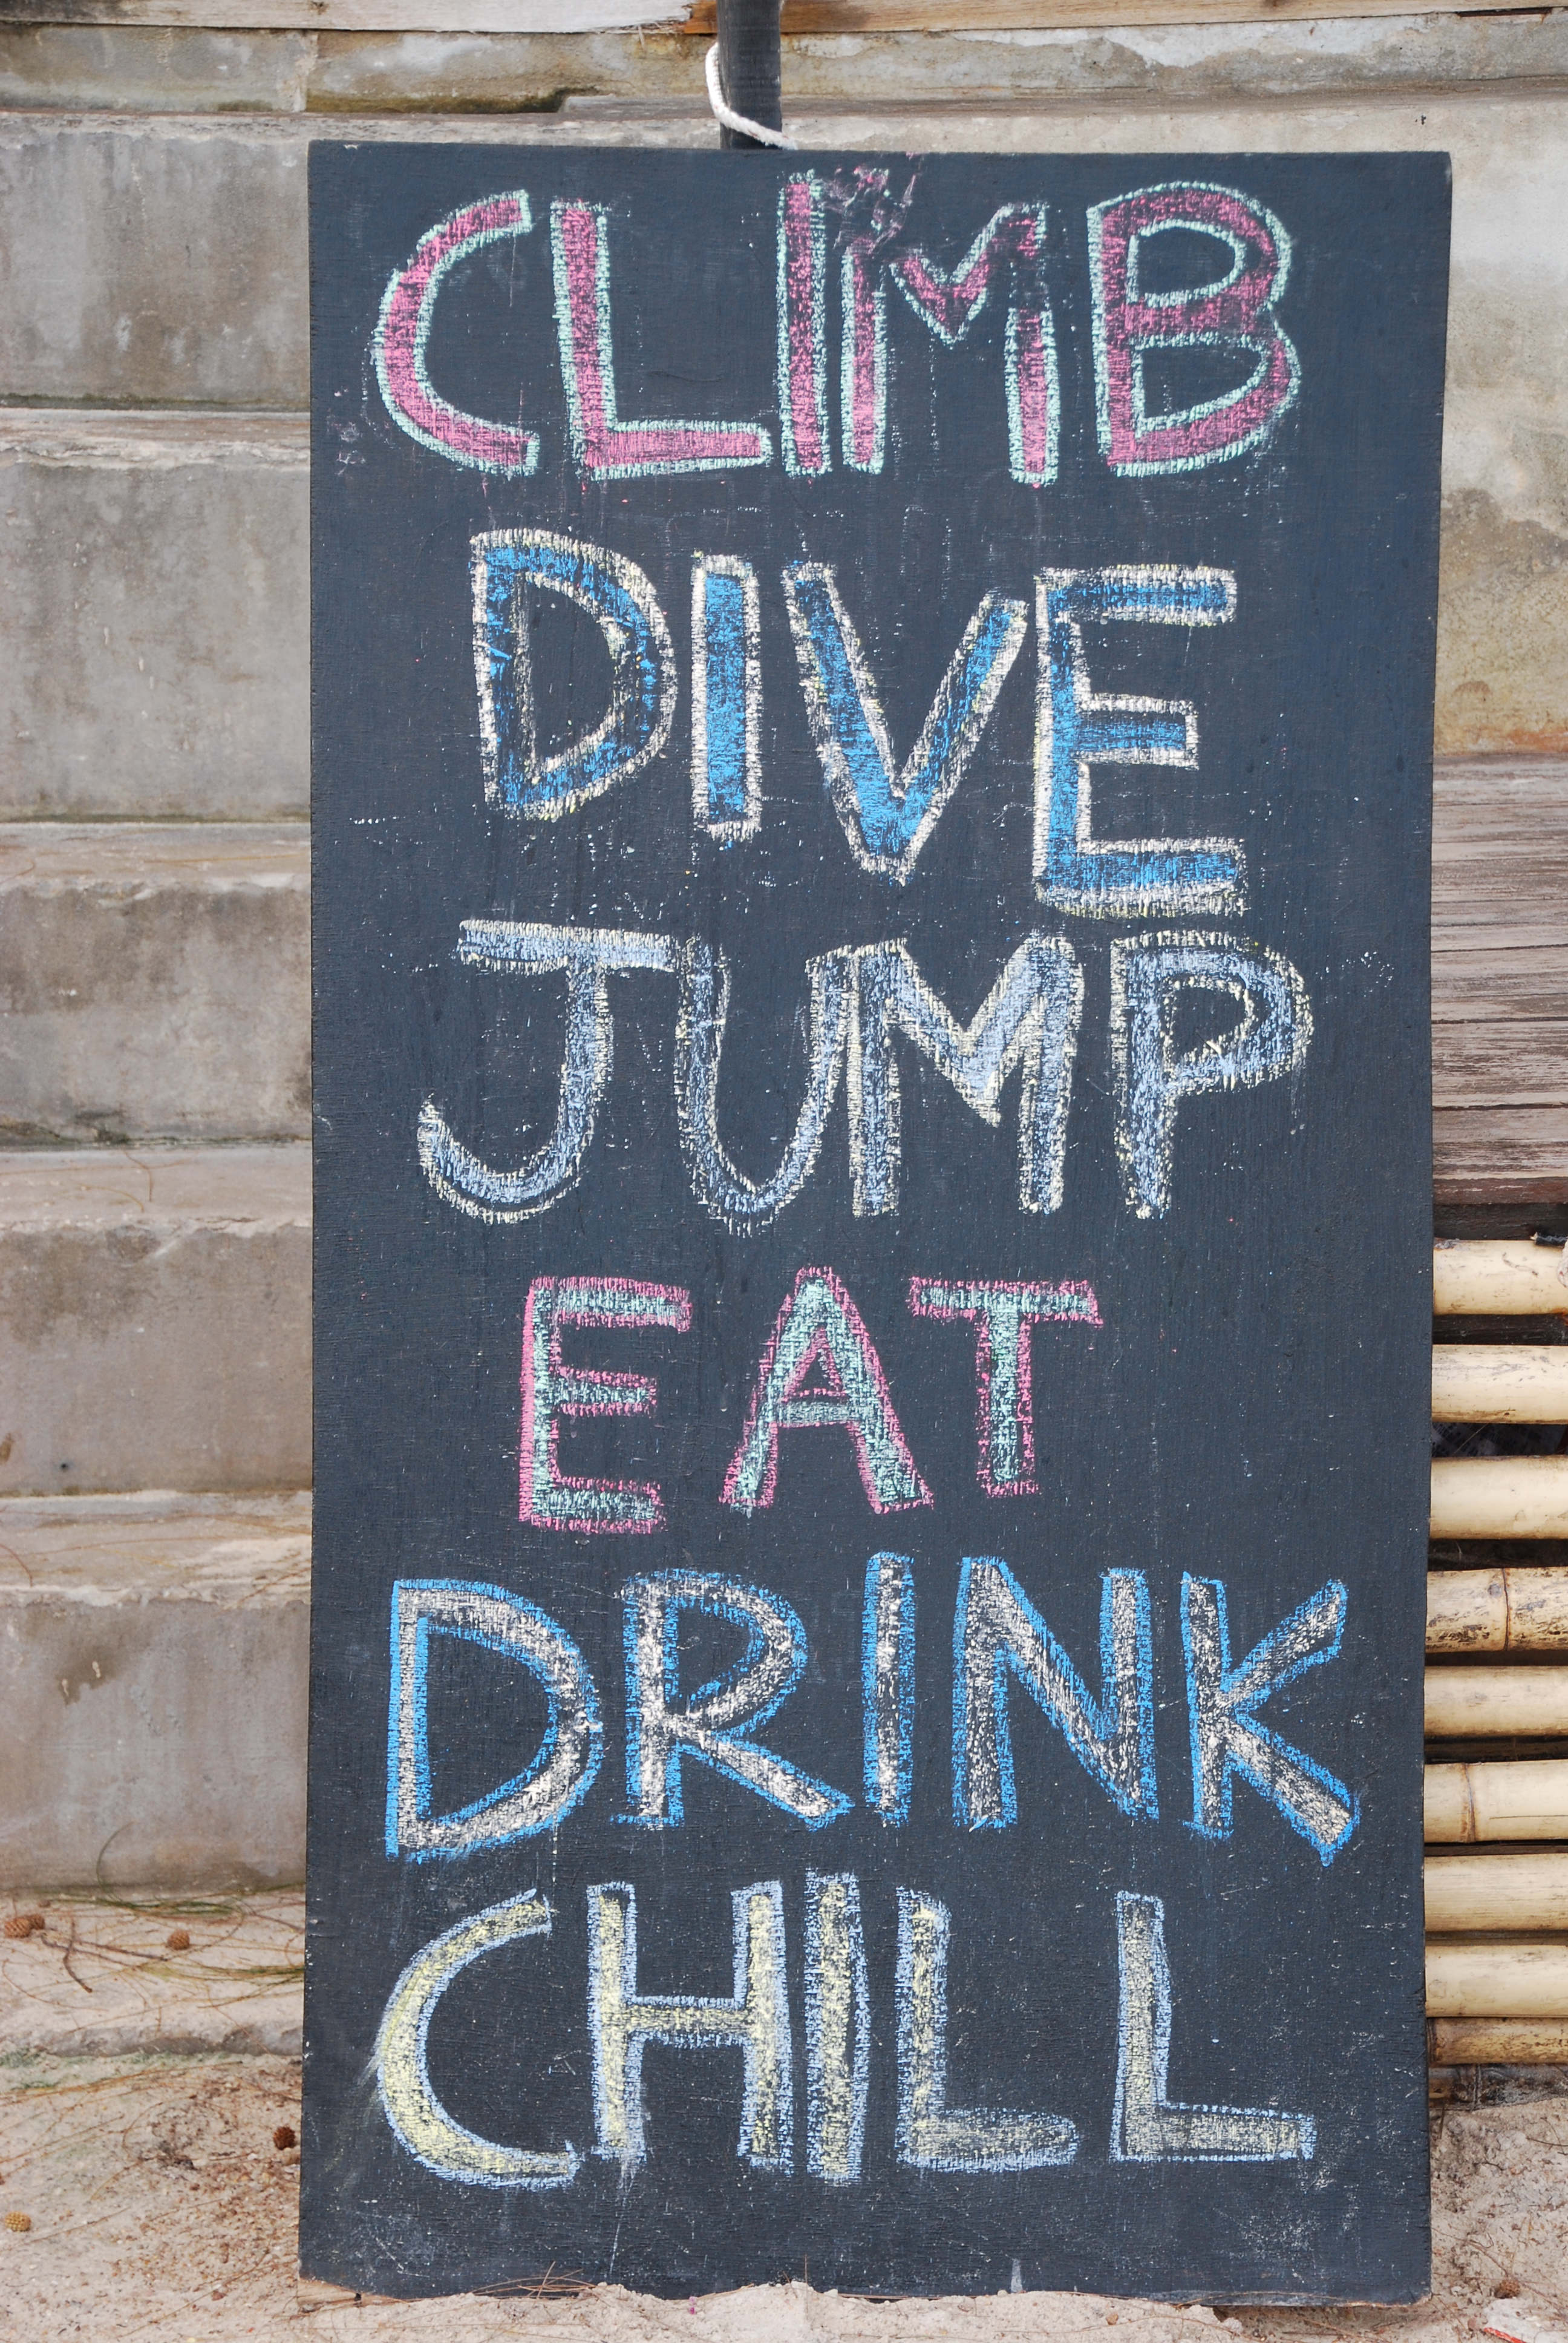 CLIMB
DIVE
JUMP
EAT
DRINK
CHILL